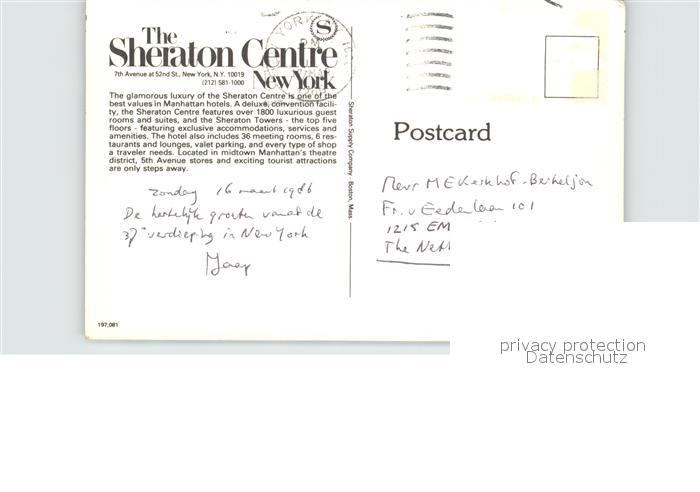 The
Sheraton Centre
7th Avenue at 52nd St., New York, N.Y. 10019
(212) 581-1000
New York
The glamorous luxury of the Sheraton Centre is one of the
best values in Manhattan hotels. A deluxe, convention facili-
ty, the Sheraton Centre features over 1800 luxurious guest
rooms and suites, and the Sheraton Towers - the top five
floors - featuring exclusive accommodations, services and
amenities. The hotel also includes 36 meeting rooms, 6 res-
taurants and lounges, valet parking, and every type of shop
a traveler needs. Located in midtown Manhattan's theatre
district, 5th Avenue stores and exciting tourist attractions
are only steps away.
zondag 16 maart 1986
De hartelijke groeten vanaf de
37e verdieping in New York
Jaap
197,081
Sheraton Supply Company - Boston, Mass.
S
YORK
PM
Postcard
Mevr M E Kerkhof-
Fr. v Eedenlaan 101
1215 EM
The Neth
privacy protection
Datenschutz